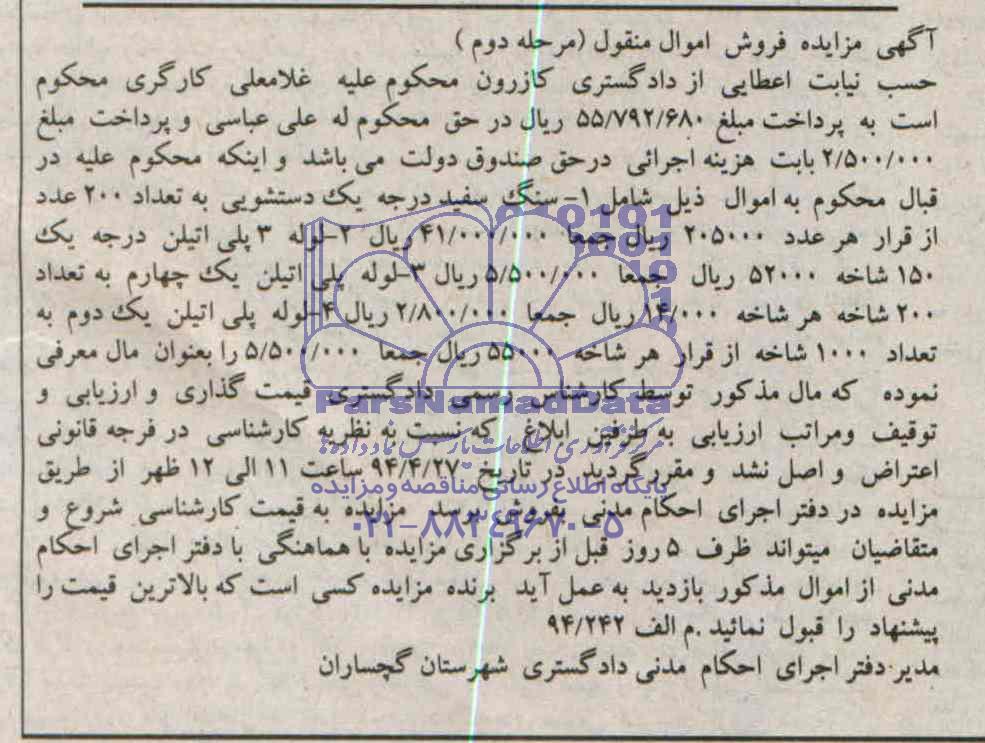 آگهی مزایده فروش اموال منقول (مرحله دوم )
حسب نیابت اعطایی از دادگستری کازرون محکوم علیه غلامعلی کارگری محکوم
است به پرداخت مبلغ ۵۵/۷۹۲/۶۸۰ ریال در حق محکوم له علی عباسی و پرداخت مبلغ
۲/۵۰۰/۰۰۰ بابت هزینه اجرائی درحق صندوق دولت می باشد و اینکه محکوم علیه در
قبال محکوم به اموال ذیل شامل ۱-سنگ سفید درجه یک دستشویی به تعداد ۲۰۰ عدد
از قرار هر عدد ۲۰۵۰۰۰ ریال جمعا ۴۱/۰۰۰/۰۰۰ ریال ۲-لوله ۳ پلی اتیلن درجه یک
۱۵۰ شاخه ۵۲۰۰۰ ریال جمعا ۵/۵۰۰/۰۰۰ ریال ۳-لوله پلی اتیلن یک چهارم به تعداد
۲۰۰ شاخه هر شاخه ۱۴/۰۰۰ ریال جمعا ۲/۸۰۰/۰۰۰ ریال ۴-لوله پلی اتیلن یک دوم به
تعداد ۱۰۰۰ شاخه از قرار هر شاخه ۵۵۰۰۰ ریال جمعا ۵/۵۰۰/۰۰۰ را بعنوان مال معرفی
نموده که مال مذکور توسط کارشناس رسمی دادگستری قیمت گذاری و ارزیابی و
ParsNamadData
توقیف ومراتب ارزیابی به طرفین ابلاغ که نسبت به نظریه کارشناسی در فرجه قانونی
مرکز فرآوری اطلاعات پارس نماد داده‌ها
اعتراض و اصل نشد و مقررگردید در تاریخ ۹۴/۴/۲۷ ساعت ۱۱ الی ۱۲ ظهر از طریق
پایگاه اطلاع رسانی مناقصه و مزایده
مزایده در دفتر اجرای احکام مدنی بفروش برسد مزایده به قیمت کارشناسی شروع و
۰۲۱-۸۸۳۴۹۶۷۰-۵
متقاضیان میتواند ظرف ۵ روز قبل از برگزاری مزایده با هماهنگی با دفتر اجرای احکام
مدنی از اموال مذکور بازدید به عمل آید برنده مزایده کسی است که بالاترین قیمت را
پیشنهاد را قبول نمائید .م الف ۹۴/۲۴۲
مدیر دفتر اجرای احکام مدنی دادگستری شهرستان گچساران